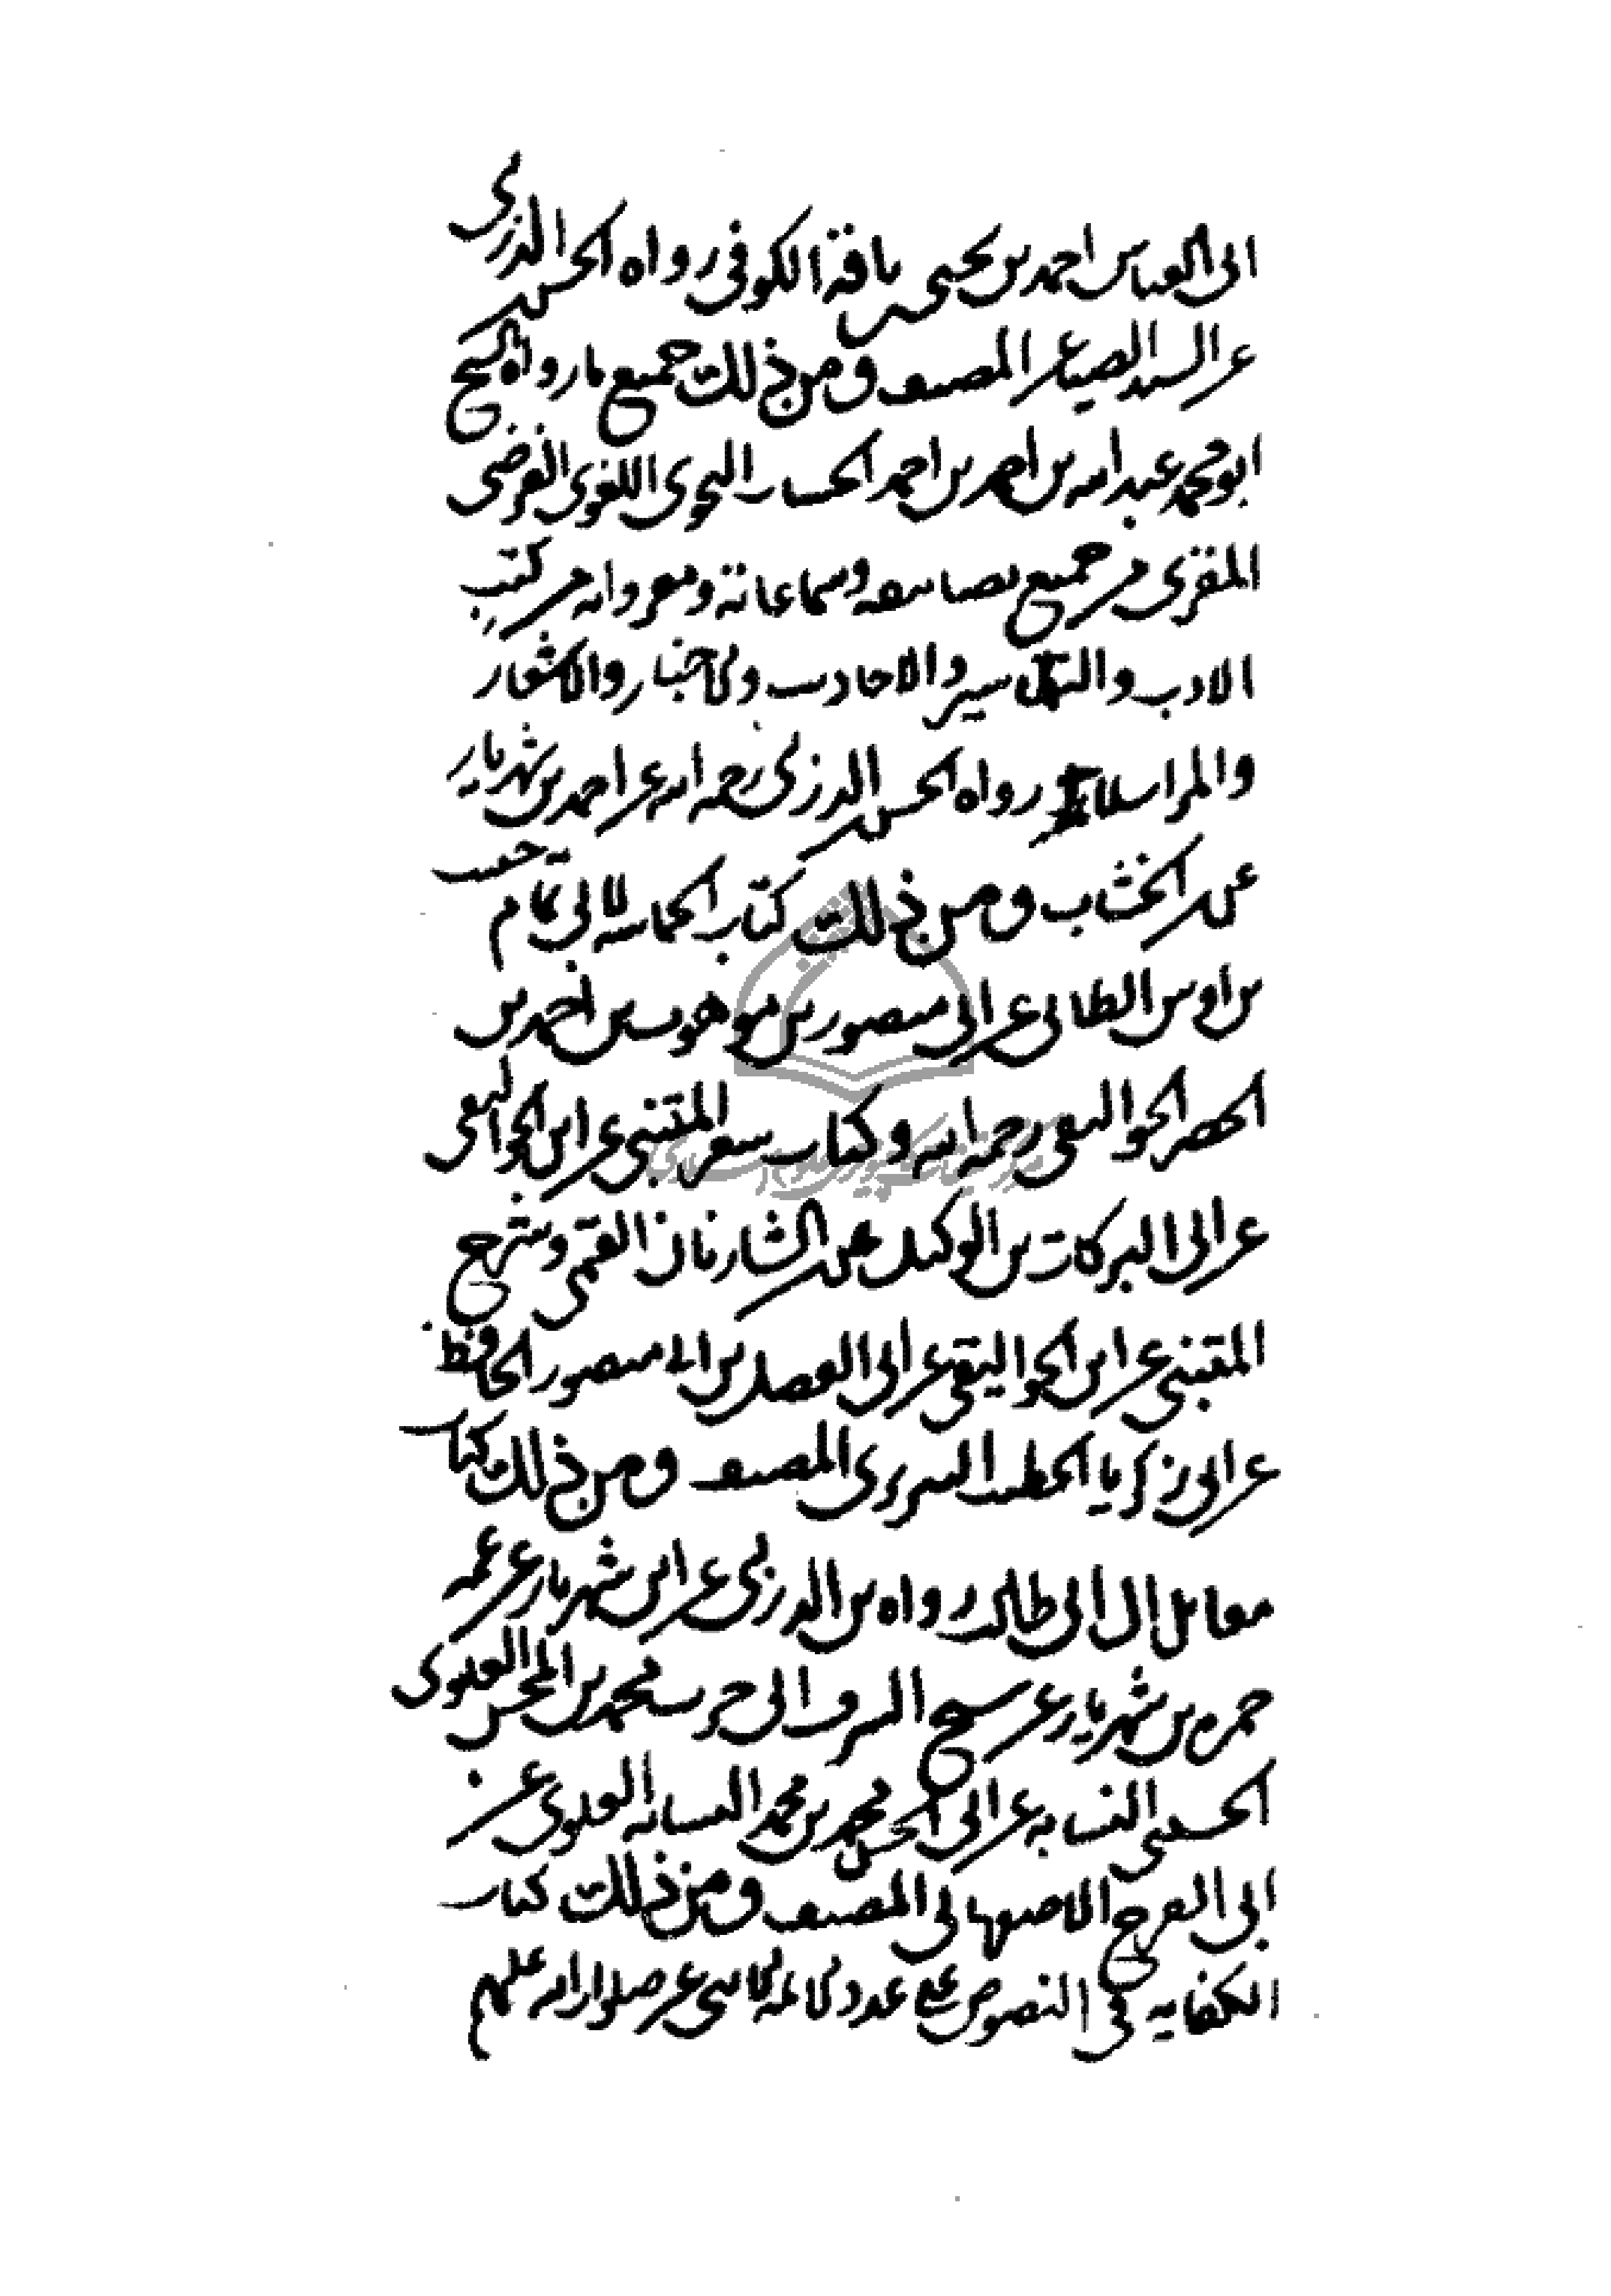 ابى العباس احمد بن يحيى بن ناقة الكوفى رواه الحسن الدربى
عن السيد الصياعن المصنف ومن ذلك جميع مارواه الشيخ
ابومحمد عبدالله بن احمد بن احمد الخشاب النحوى اللغوى الفرضى
المقرى من جميع تصانيفه وسماعاته ومقرواته من كتب
الادب والتفاسير والاحاديث والاخبار والاشعار
والمراسلات رواه الحسن الدربى رحمه الله عن احمد بن شهريار
عن الخشاب ومن ذلك كتاب الحماسه لابى تمام حبيب
بن اوس الطائى عن ابى منصور بن موهوب بن احمد بن
الخضر الجواليقى رحمه الله وكتاب شعر المتنبى عن ابن الجواليقى
عن ابى البركات بن الوكيل عن الشاربان القمى وشرح
المتنبى عن ابن الجواليقى عن ابى الفضل بن ابى منصور الحافظ
عن ابى زكريا الخطيب التبريزى المصنف ومن ذلك كتاب
مقاتل ال ابى طالب رواه بن الدربى عن ابن شهريار عن عمه
حمزه بن شهريار عن الشرف ابى حرب محمد بن المحسن العلوى
الحسينى النسابه عن ابى الحسن محمد بن محمد النسابه العلوى عن
ابى الفرج الاصبهانى المصنف ومن ذلك كتاب
الكفايه فى النصوص على عدد الائمه الاثنى عشر صلوات الله عليهم